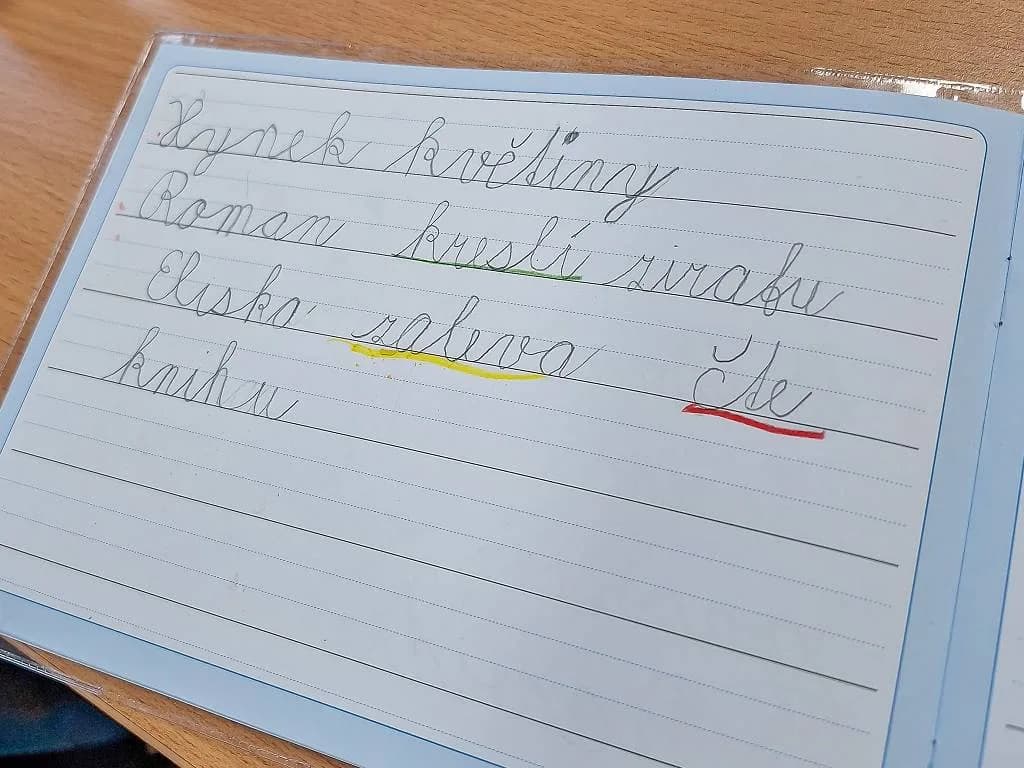 Hynek květiny
Roman kreslí zirafu
Eliska zaleva čte
knihu